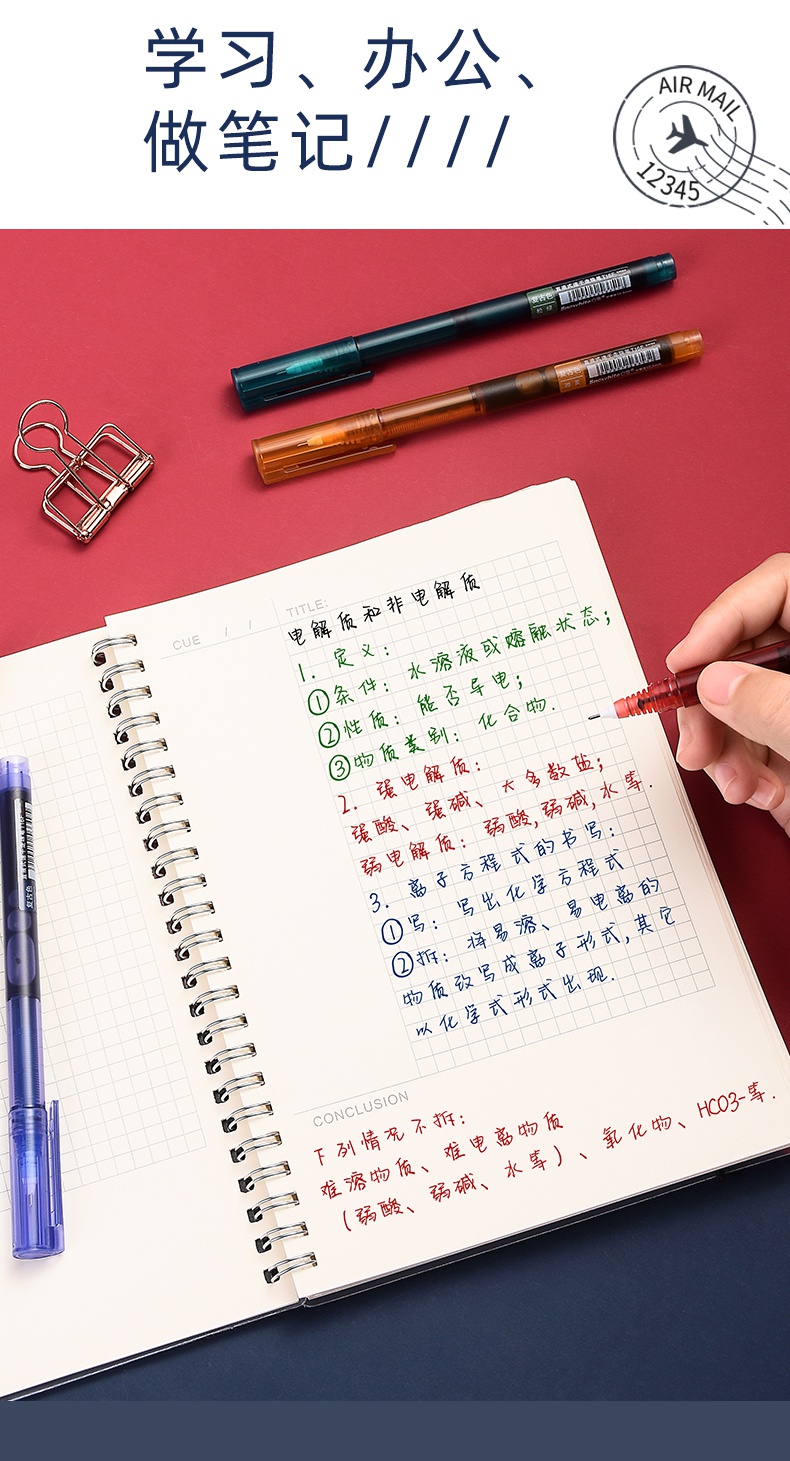 学习、办公、
做笔记////
AIR MAIL
12345
复古色
Snowhite
复古色
Snowhite
复古色
CUE / /
TITLE:
电解质和非电解质
1. 定义:
①条件: 水溶液或熔融状态;
②性质: 能否导电;
③物质类别: 化合物.
2. 强电解质:
强酸、强碱、大多数盐;
弱电解质: 弱酸,弱碱,水等.
3. 离子方程式的书写:
①写: 写出化学方程式
②拆: 将易溶、易电离的
物质改写成离子形式,其它
以化学式形式出现.
CONCLUSION
下列情况不拆:
难溶物质、难电离物质
(弱酸、弱碱、水等)、氧化物、HCO3-等.